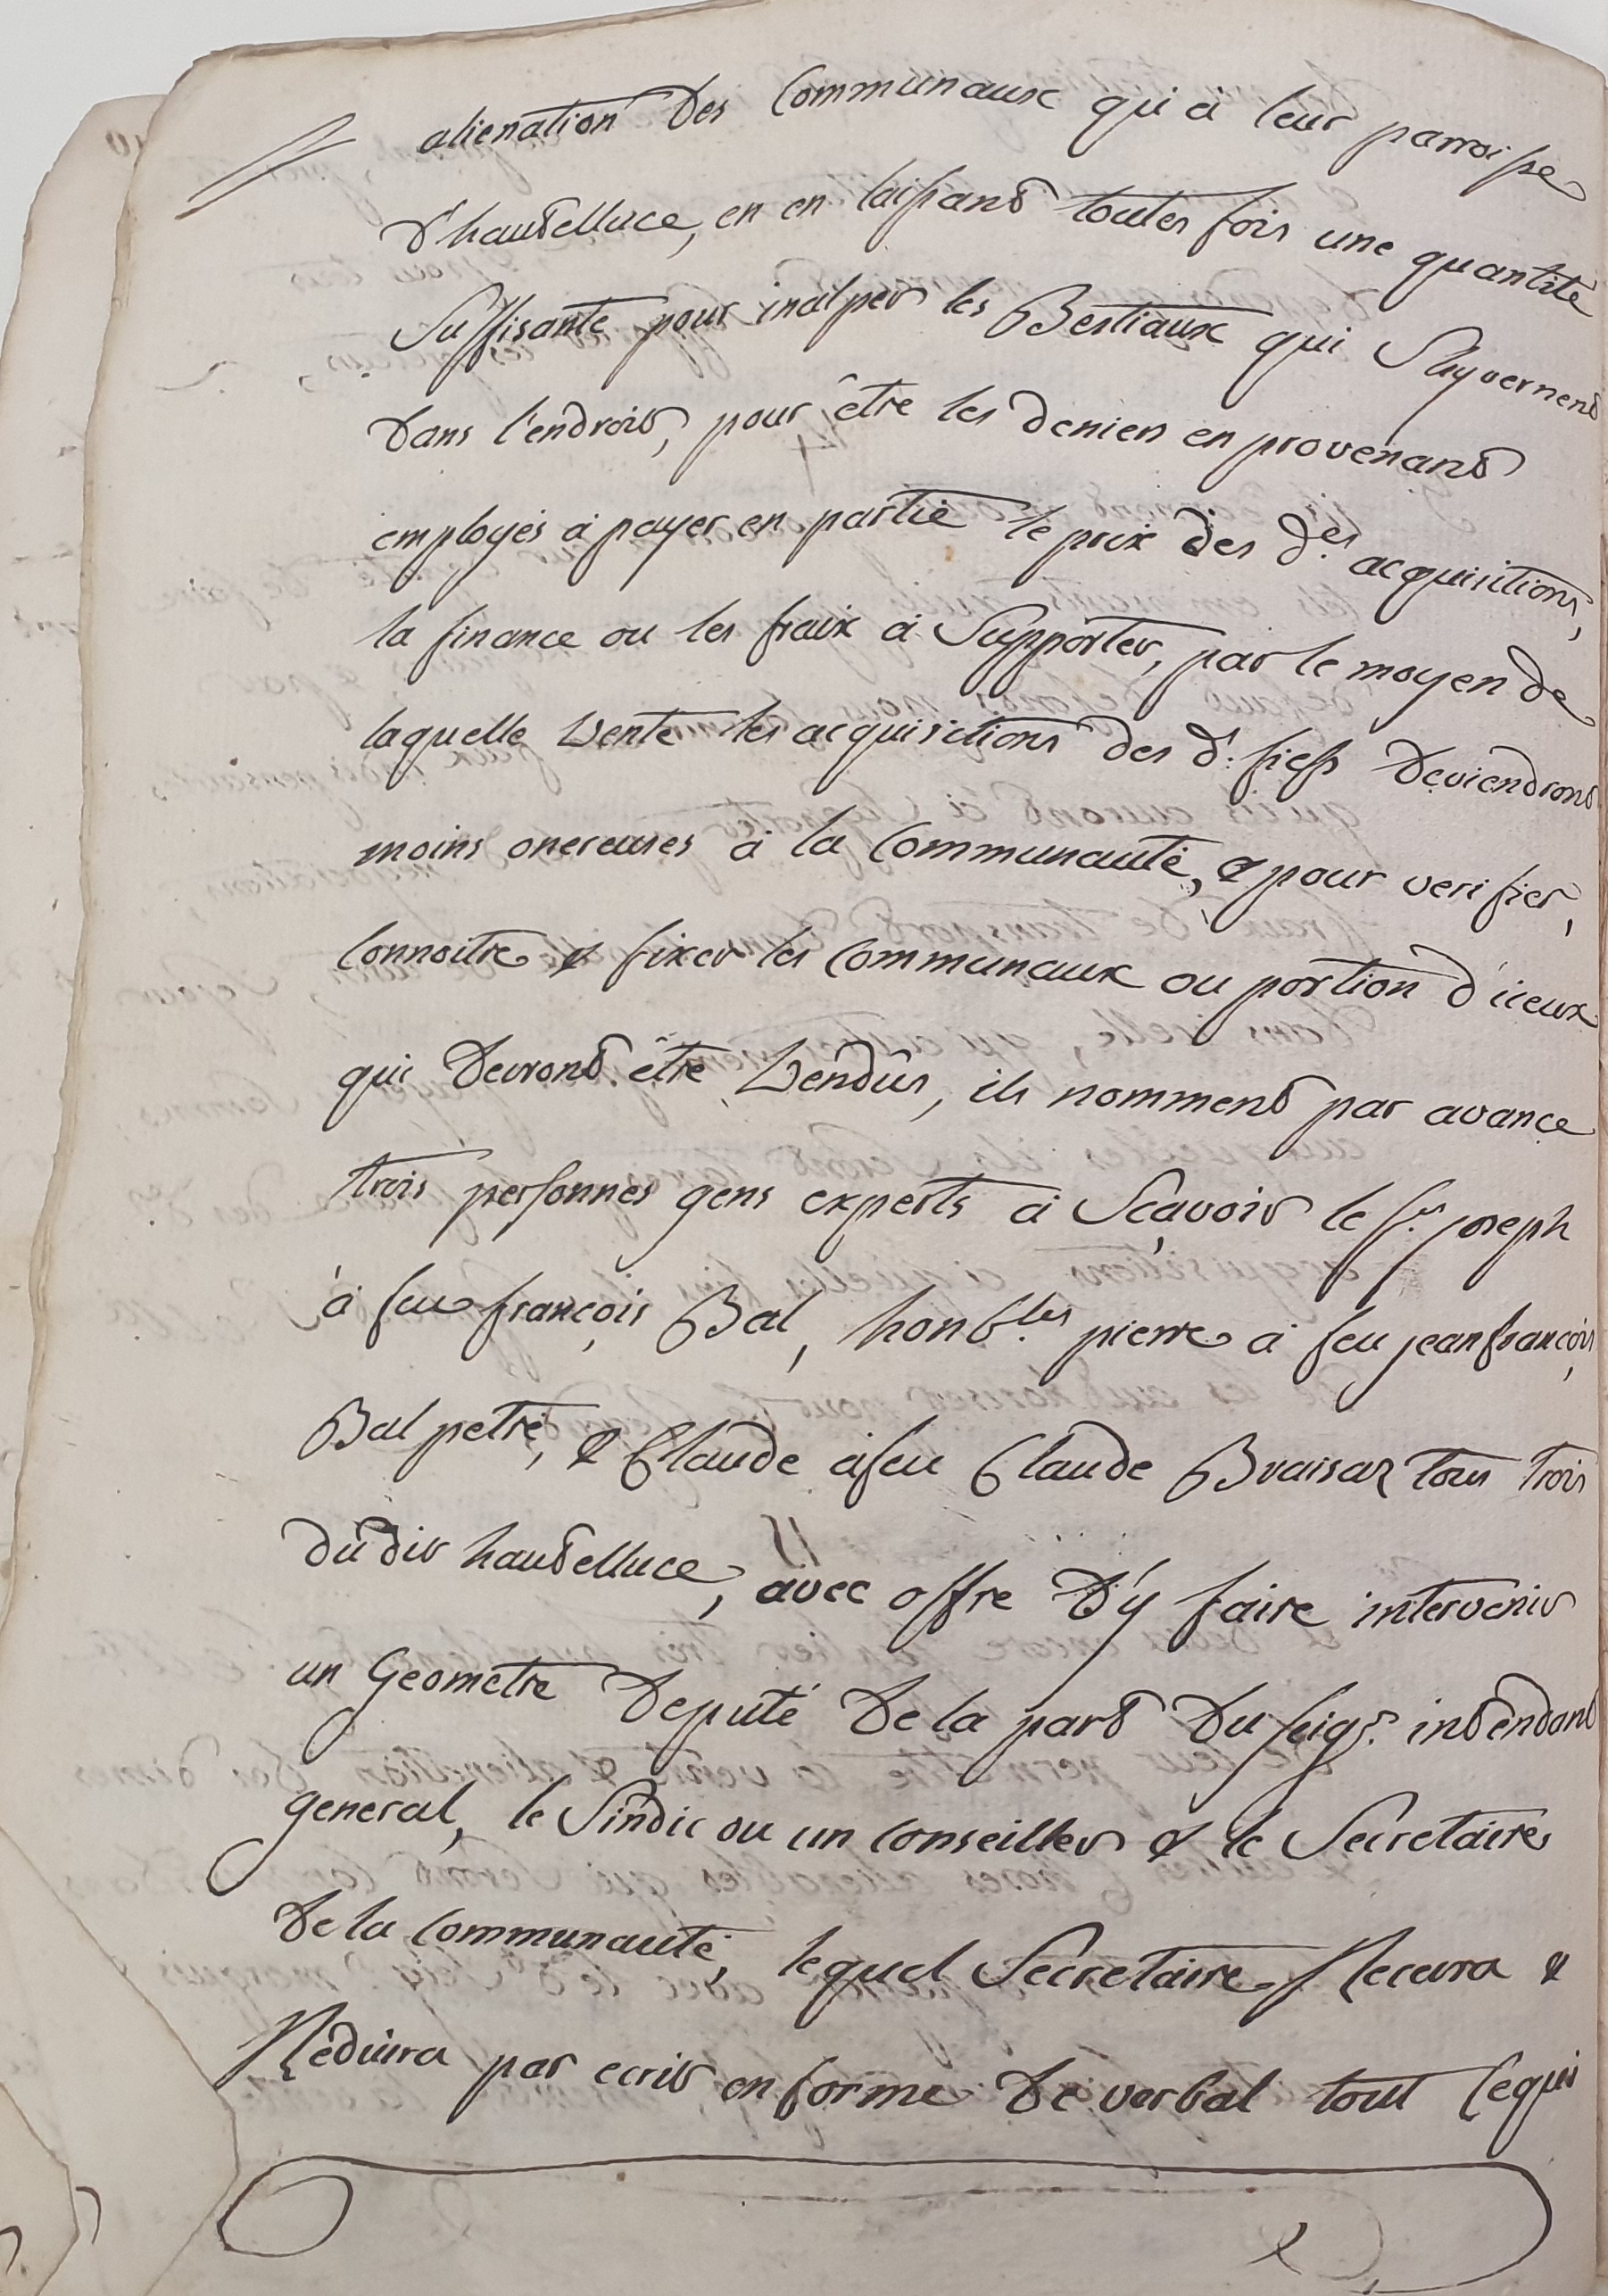 alienation des Communaux qui à leur parroisse
d'hautelluce, en en laissant toutes fois une quantité
Suffisante pour inalper les Bestiaux qui S'hyvernent
dans l'endroit, pour être les deniers en provenant
employés à payer en partie le prix des d.es acquisitions,
la finance ou les fraix à Supporter, par le moyen de
laquelle Vente les acquisitions des d. fiefs deviendront
moins onereuses à la Communauté, & pour verifier,
Connoitre & fixer les Communaux ou portion d'iceux
qui devront être Vendûs, ils nomment par avance
trois personnes gens experts à Sçavoir le s.r joseph
à feu françois Bal, honb.les pierre à feu jeanfrançois
Bal petré, & Claude à feu Claude Braisaz tous trois
dûdit hautelluce, avec offre d'y faire intervenir
un Geometre deputé de la part du seigr. intendant
general, le Sindic ou un Conseiller & le Secretaire
de la Communauté, lequel Secretaire Recevra &
Rédûira par ecrit en forme de verbal tout Ce qui